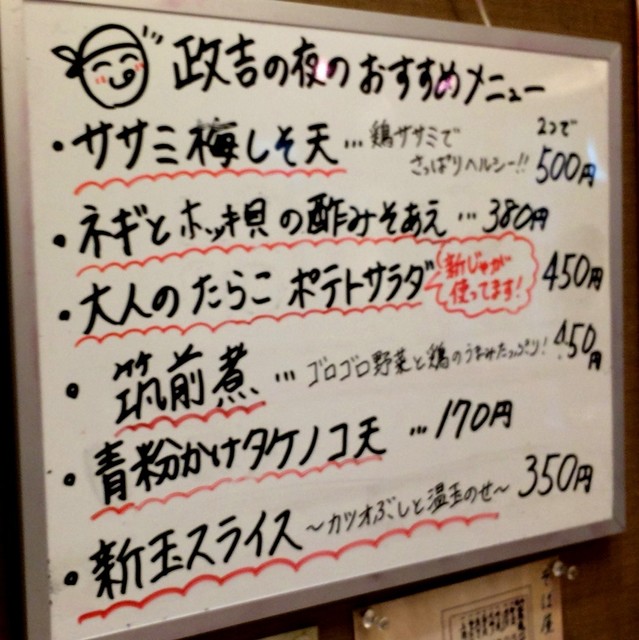 政吉の夜のおすすめメニュー
・ササミ梅しそ天…鶏ササミで 2つで
さっぱりヘルシー!! 500円
・ネギとホッキ貝の酢みそあえ…380円
・大人のたらこ ポテトサラダ 450円
新じゃが
使ってます!
・筑前煮…ゴロゴロ野菜と鶏のうまみたっぷり! 450円
・青粉かけタケノコ天…170円
・新玉スライス~カツオぶしと温玉のせ~ 350円
そば屋